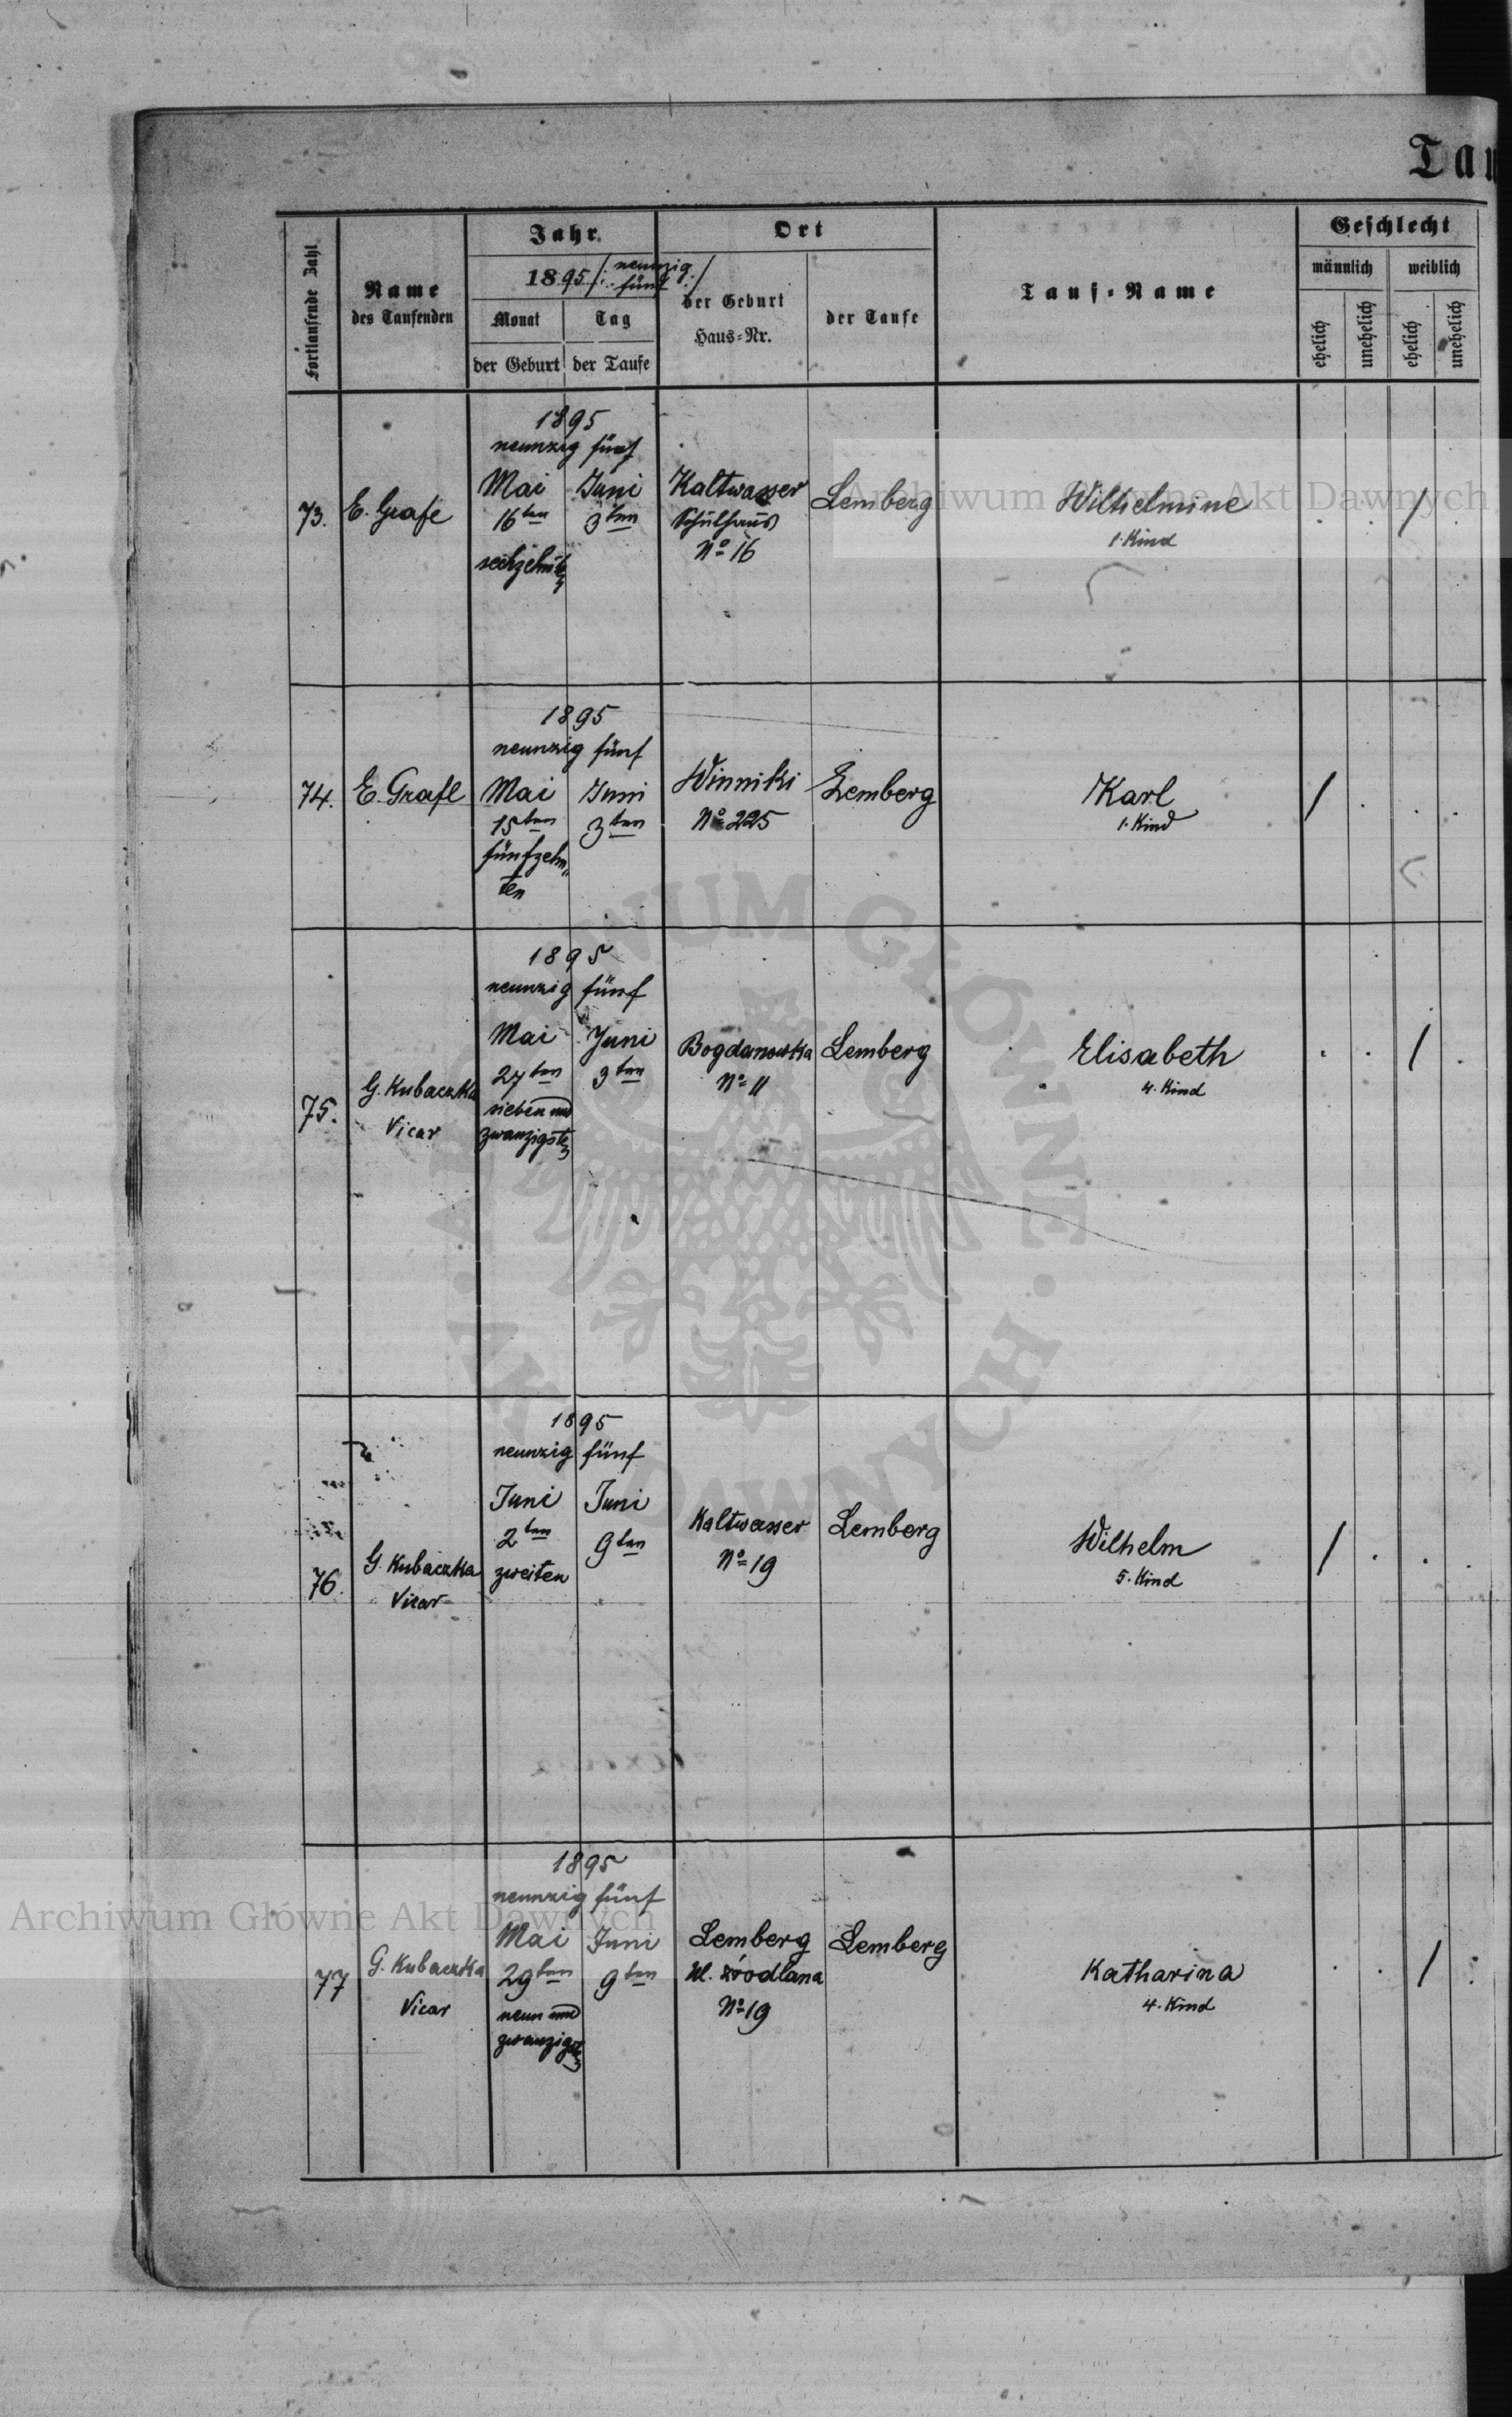 Tau
Fortlaufende Zahl
Name
des Taufenden
Jahr
1895 /: neunzig
fünf :/
Monat
Tag
der Geburt
der Taufe
Ort
der Geburt
Haus-Nr.
der Taufe
Tauf-Name
Geschlecht
männlich
weiblich
ehelich
unehelich
ehelich
unehelich
1895
neunzig fünf
73.
E. Grafe
Mai
16ten
sechzehnten
Juni
3ten
Kaltwasser
Schulhaus
No 16
Lemberg
Wilhelmine
1. Kind
. . / .
1895
neunzig fünf
74.
E. Grafe
Mai
15ten
fünfzehn"
ten
Juni
3ten
Winniki
No 225
Lemberg
Karl
1. Kind
/ . . .
1895
neunzig fünf
75.
G. Kubaczka
Vicar
Mai
27ten
sieben und
zwanzigsten
Juni
3ten
Bogdanowka
No 11
Lemberg
Elisabeth
4. Kind
. . / .
1895
neunzig fünf
76.
G. Kubaczka
Vicar
Juni
2ten
zweiten
Juni
9ten
Kaltwasser
No 19
Lemberg
Wilhelm
5. Kind
/ . . .
1895
neunzig fünf
77
G. Kubaczka
Vicar
Mai
29ten
neun und
zwanzigsten
Juni
9ten
Lemberg
Ul. źródlana
No 19
Lemberg
Katharina
4. Kind
. . / .
Archiwum Główne Akt Dawnych
Archiwum Główne Akt Dawnych
ARCHIWUM GŁÓWNE AKT DAWNYCH